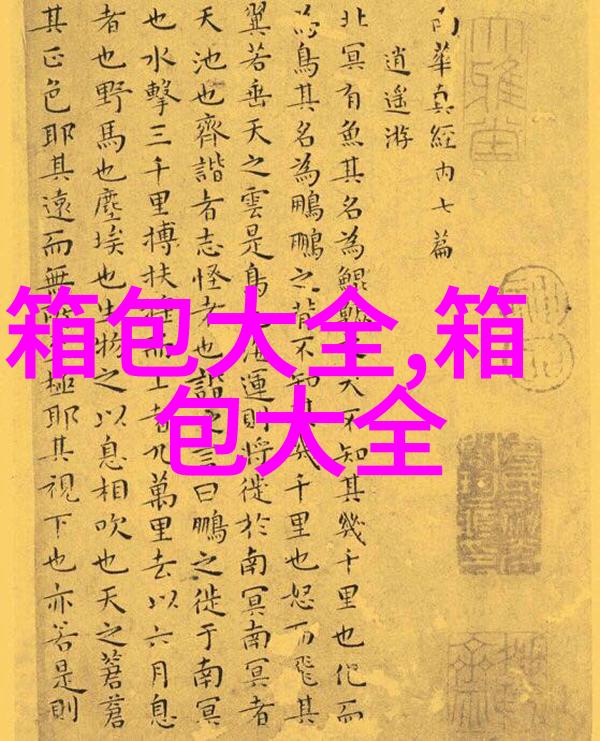 南華真經内七篇
逍遥游
北冥有魚其名為鯤大不知其幾千里也化而
為鳥其名為鵬鵬之背不知其幾千里也怒而飛其
翼若垂天之雲是鳥也海運則將徙於南冥南冥者
天池也齊諧者志怪者也諧之言曰鵬之徙于南冥
也水擊三千里搏扶而上者九萬里去以六月息
者也野馬也塵埃也生物之以息相吹也天之蒼蒼
其正色耶其遠而無極耶其視下也亦若是則
箱包大全,箱
包大全
大雅堂